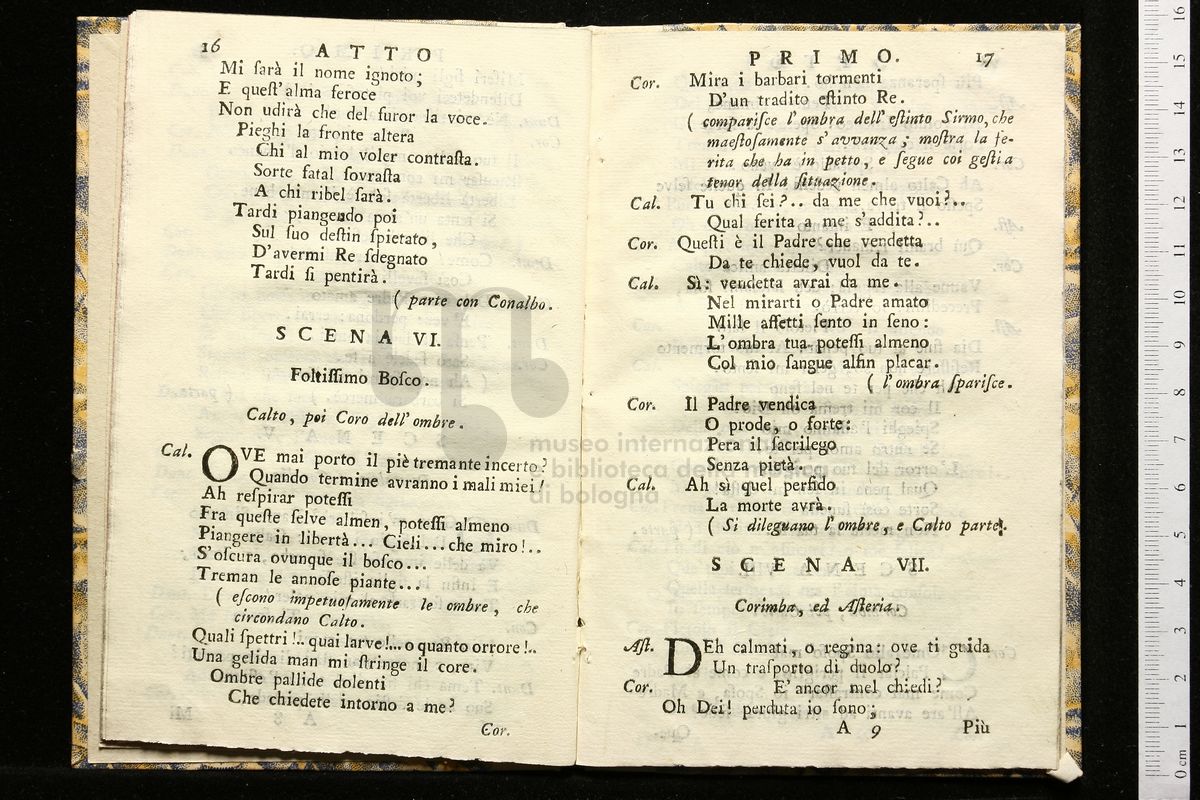 16 ATTO
Mi ſarà il nome ignoto;
E queſt'alma feroce
Non udirà che del furor la voce.
Pieghi la fronte altera
Chi al mio voler contraſta.
Sorte fatal ſovraſta
A chi ribel ſarà.
Tardi piangendo poi
Sul ſuo deſtin ſpietato,
D'avermi Re ſdegnato
Tardi ſi pentirà.
( parte con Conalbo.
SCENA VI.
Foltiſſimo Boſco.
Calto, poi Coro dell'ombre.
Cal. OVE mai porto il piè tremante incerto?
Quando termine avranno i mali miei!
Ah reſpirar poteſſi
Fra queſte ſelve almen, poteſſi almeno
Piangere in libertà... Cieli...che miro!..
S'oſcura ovunque il boſco...
Treman le annoſe piante...
( eſcono impetuoſamente le ombre, che
circondano Calto.
Quali ſpettri!.. quai larve!... o quanto orrore!..
Una gelida man mi ſtringe il core.
Ombre pallide dolenti
Che chiedete intorno a me?
Cor.
PRIMO. 17
Cor. Mira i barbari tormenti
D'un tradito eſtinto Re.
( compariſce l'ombra dell'eſtinto Sirmo, che
maeſtoſamente s'avvanza; moſtra la fe-
rita che ha in petto, e ſegue coi geſti a
tenor della ſituazione.
Cal. Tu chi ſei?.. da me che vuoi?..
Qual ferita a me s'addita?..
Cor. Queſti è il Padre che vendetta
Da te chiede, vuol da te.
Cal. Sì: vendetta avrai da me.
Nel mirarti o Padre amato
Mille affetti ſento in ſeno:
L'ombra tua poteſſi almeno
Col mio ſangue alfin placar.
( l'ombra ſpariſce.
Cor. Il Padre vendica
O prode, o forte:
Pera il ſacrilego
Senza pietà.
Cal. Ah sì quel perfido
La morte avrà.
( Si dileguano l'ombre, e Calto parte.
SCENA VII.
Corimba, ed Aſteria.
Aſt. DEh calmati, o regina: ove ti guida
Un traſporto di duolo?
Cor. E' ancor mel chiedi?
Oh Dei! perduta io ſono;
A 9 Più
museo internaz
biblioteca della musica
di bologna
0 cm 1 2 3 4 5 6 7 8 9 10 11 12 13 14 15 16